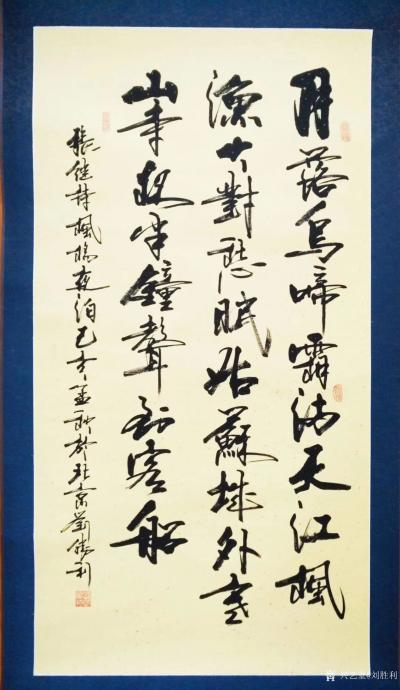 月落烏啼霜滿天江楓
漁火對愁眠姑蘇城外寒
山寺夜半鐘聲到客船
張継詩楓橋夜泊己亥孟秋於北京劉勝利
兴艺堂@刘胜利